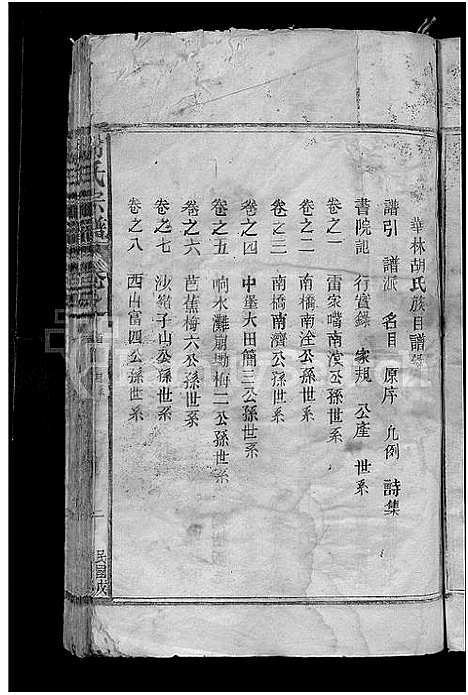 華林胡氏族目譜錄
譜引 譜派 名目 原序 凡例 詩集
書院記 行實錄 家規 公產 世系
卷之一 雷家嘴南滢公孫世系
卷之二 南橋南溎公孫世系
卷之三 南橋南濟公孫世系
卷之四 中堡大田簡三公孫世系
卷之五 响水灘廟坳梅二公孫世系
卷之六 芭蕉梅六公孫世系
卷之七 沙嶺子山公孫世系
卷之八 西山富四公孫世系
胡氏宗譜 卷之
民國戊